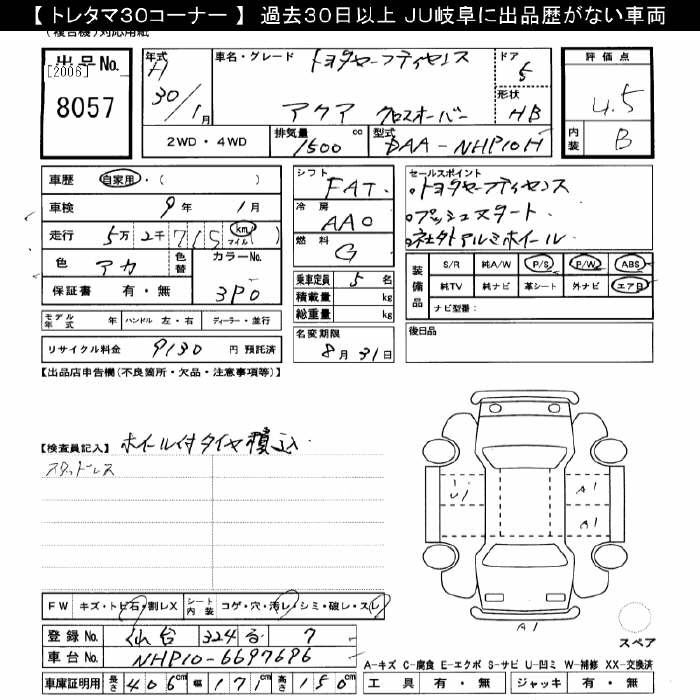 【 トレタマ30コーナー 】 過去30日以上 JU岐阜に出品歴がない車両
(複合機)対応用紙
出品No. [2006] 8057
年式 H 30/1月
車名・グレード トヨタセーフティセンス
アクア クロスオーバー
ドア 5
形状 HB
評価点 4.5
内装 B
2WD・4WD
排気量 1500 cc
型式 DAA-NHP10H
車歴 自家用・( )
車検 9年 1月
走行 5万 2千 7 1 5 km マイル ( )
色 アカ 色替
カラーNo. 3P0
保証書 有・無
モデル年式 年 ハンドル 左・右 ディーラー・並行
リサイクル料金 9130 円 預託済
シフト FAT
冷房 AAC
燃料 G
乗車定員 5 名
積載量 kg
総重量 kg
名変期限 8月31日
セールスポイント
・トヨタセーフティセンス
・プッシュスタート
・社外アルミホイール
装備品 S/R 純A/W P/S P/W ABS
純TV 純ナビ 革シート 外ナビ エアB
ナビ型番:
後日品
【出品店申告欄(不良箇所・欠品・注意事項等)】
【検査員記入】 ホイール付タイヤ積込
スタッドレス
U1
A1
A1
A1
スペア
FW キズ・トビ石・割レX シート内装 コゲ・穴・汚レ・シミ・破レ・スレ
登録No. 仙台 324 る 7
車台No. NHP10-6697696
車庫証明用 長さ 406cm 幅 171cm 高さ 150cm
A-キズ C-腐食 E-エクボ S-サビ U-凹ミ W-補修 XX-交換済
工具 有・無 ジャッキ 有・無